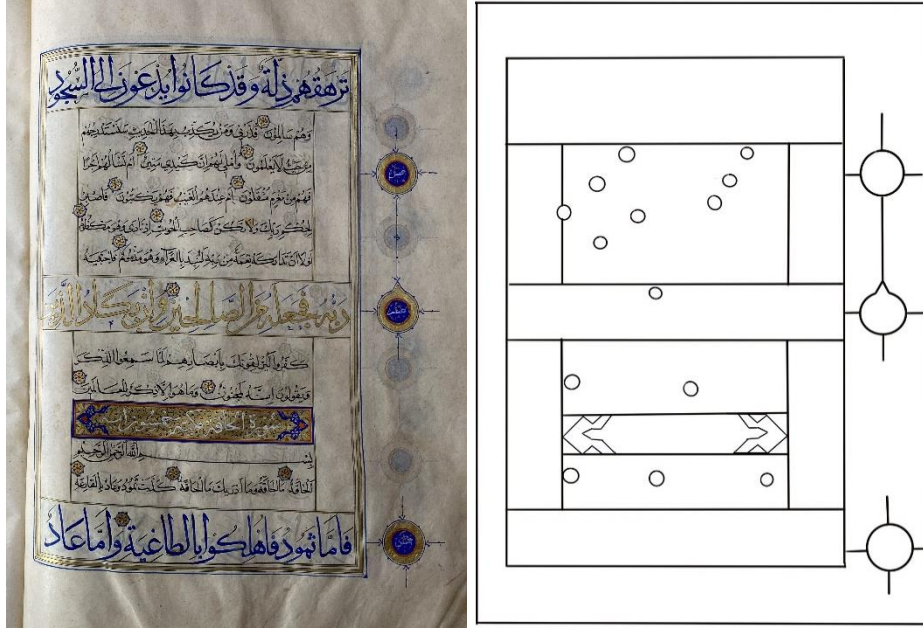 ترهقهم ذلة وقد كانوا يدعون الى السجود
وهم سالمون فذرني ومن يكذب بهذا الحديث سنستدرجهم
من حيث لا يعلمون واملي لهم ان كيدي متين ام تسألهم اجرا
فهم من مغرم مثقلون ام عندهم الغيب فهم يكتبون فاصبر
لحكم ربك ولا تكن كصاحب الحوت اذ نادى وهو مكظوم
لولا ان تداركه نعمة من ربه لنبذ بالعراء وهو مذموم فاجتبيه
ربه فجعله من الصالحين وان يكاد الذين
كفروا ليزلقونك بابصارهم لما سمعوا الذكر
ويقولون انه لمجنون وما هو الا ذكر للعالمين
سورة الحاقة
بسم الله الرحمن الرحيم
الحاقة ما الحاقة وما ادريك ما الحاقة كذبت ثمود وعاد بالقارعة
فاما ثمود فاهلكوا بالطاغية واما عاد